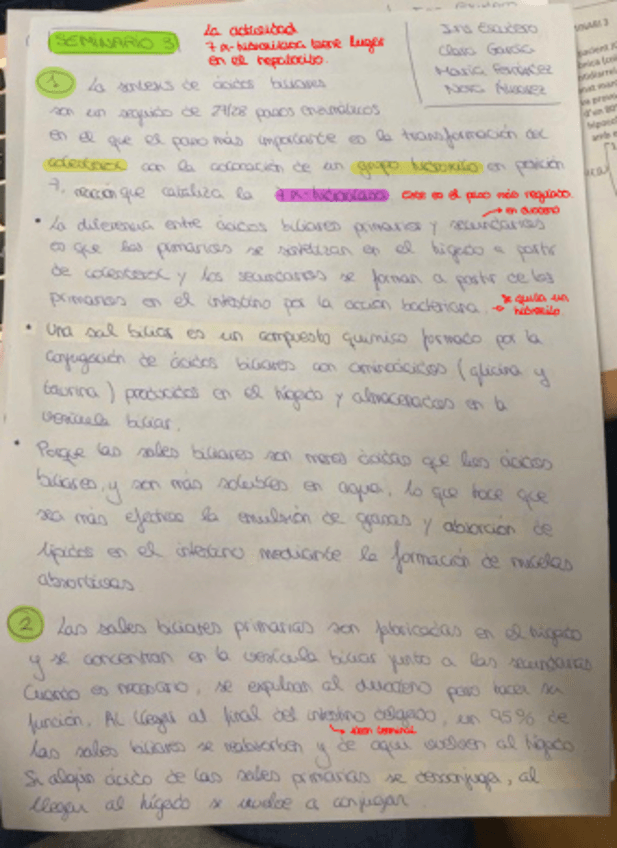 SEMINARIO 3
La actividad
7α-hidroxilasa tiene lugar
en el hepatocito.
Clara García
María Fernández
Nora Álvarez
1 La síntesis de ácidos biliares
son un seguido de 27/28 pasos enzimáticos
en el que el paso más importante es la transformación del
colesterol con la colocación de un grupo hidroxilo en posición
7, reacción que cataliza la 7α-hidroxilasa Este es el paso más regulado
→ en duodeno
• La diferencia entre ácidos biliares primarios y secundarios
es que los primarios se sintetizan en el hígado a partir
de colesterol y los secundarios se forman a partir de los
primarios en el intestino por la acción bacteriana. → se quita un
hidroxilo
• Una sal biliar es un compuesto químico formado por la
conjugación de ácidos biliares con aminoácidos (glicina y
taurina) producidos en el hígado y almacenados en la
vesícula biliar.
• Porque las sales biliares son menos ácidas que los ácidos
biliares, y son más solubles en agua, lo que hace que
sea más efectiva la emulsión de grasas y absorción de
lípidos en el intestino mediante la formación de micelas
absortivas
2 Las sales biliares primarias son fabricadas en el hígado
y se concentran en la vesícula biliar junto a las secundarias
Cuando es necesario, se expulsan al duodeno para hacer su
función. Al llegar al final del intestino delgado, un 95% de
→ íleon terminal
las sales biliares se reabsorben y de aquí vuelven al hígado
Si algún ácido de las sales primarias se desconjuga, al
llegar al hígado se vuelve a conjugar